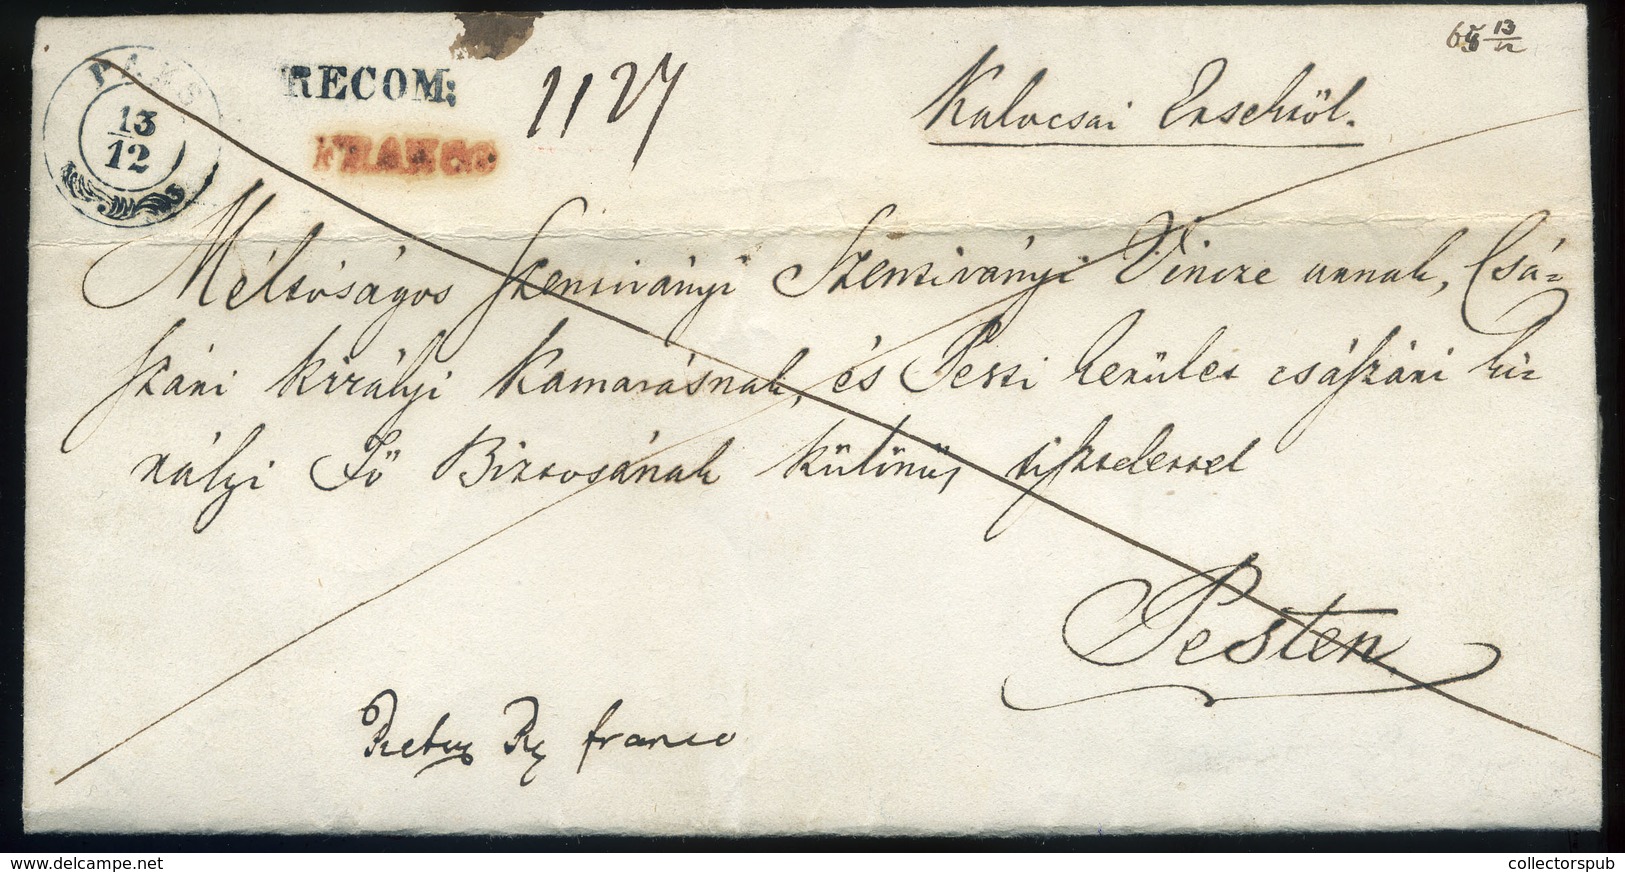 65 13/12
PAKS
13
12
RECOM:
FRANCO
Kalocsai Érsektöl.
Méltóságos Szentiványi Szentiványi Vincze urnak, Csá-
szári királyi Kamarásnak, és Pesti kerület császári ki-
rályi Fő Biztosának különös tisztelettel
Pesten
franco
www.delcampe.net
collectorspub